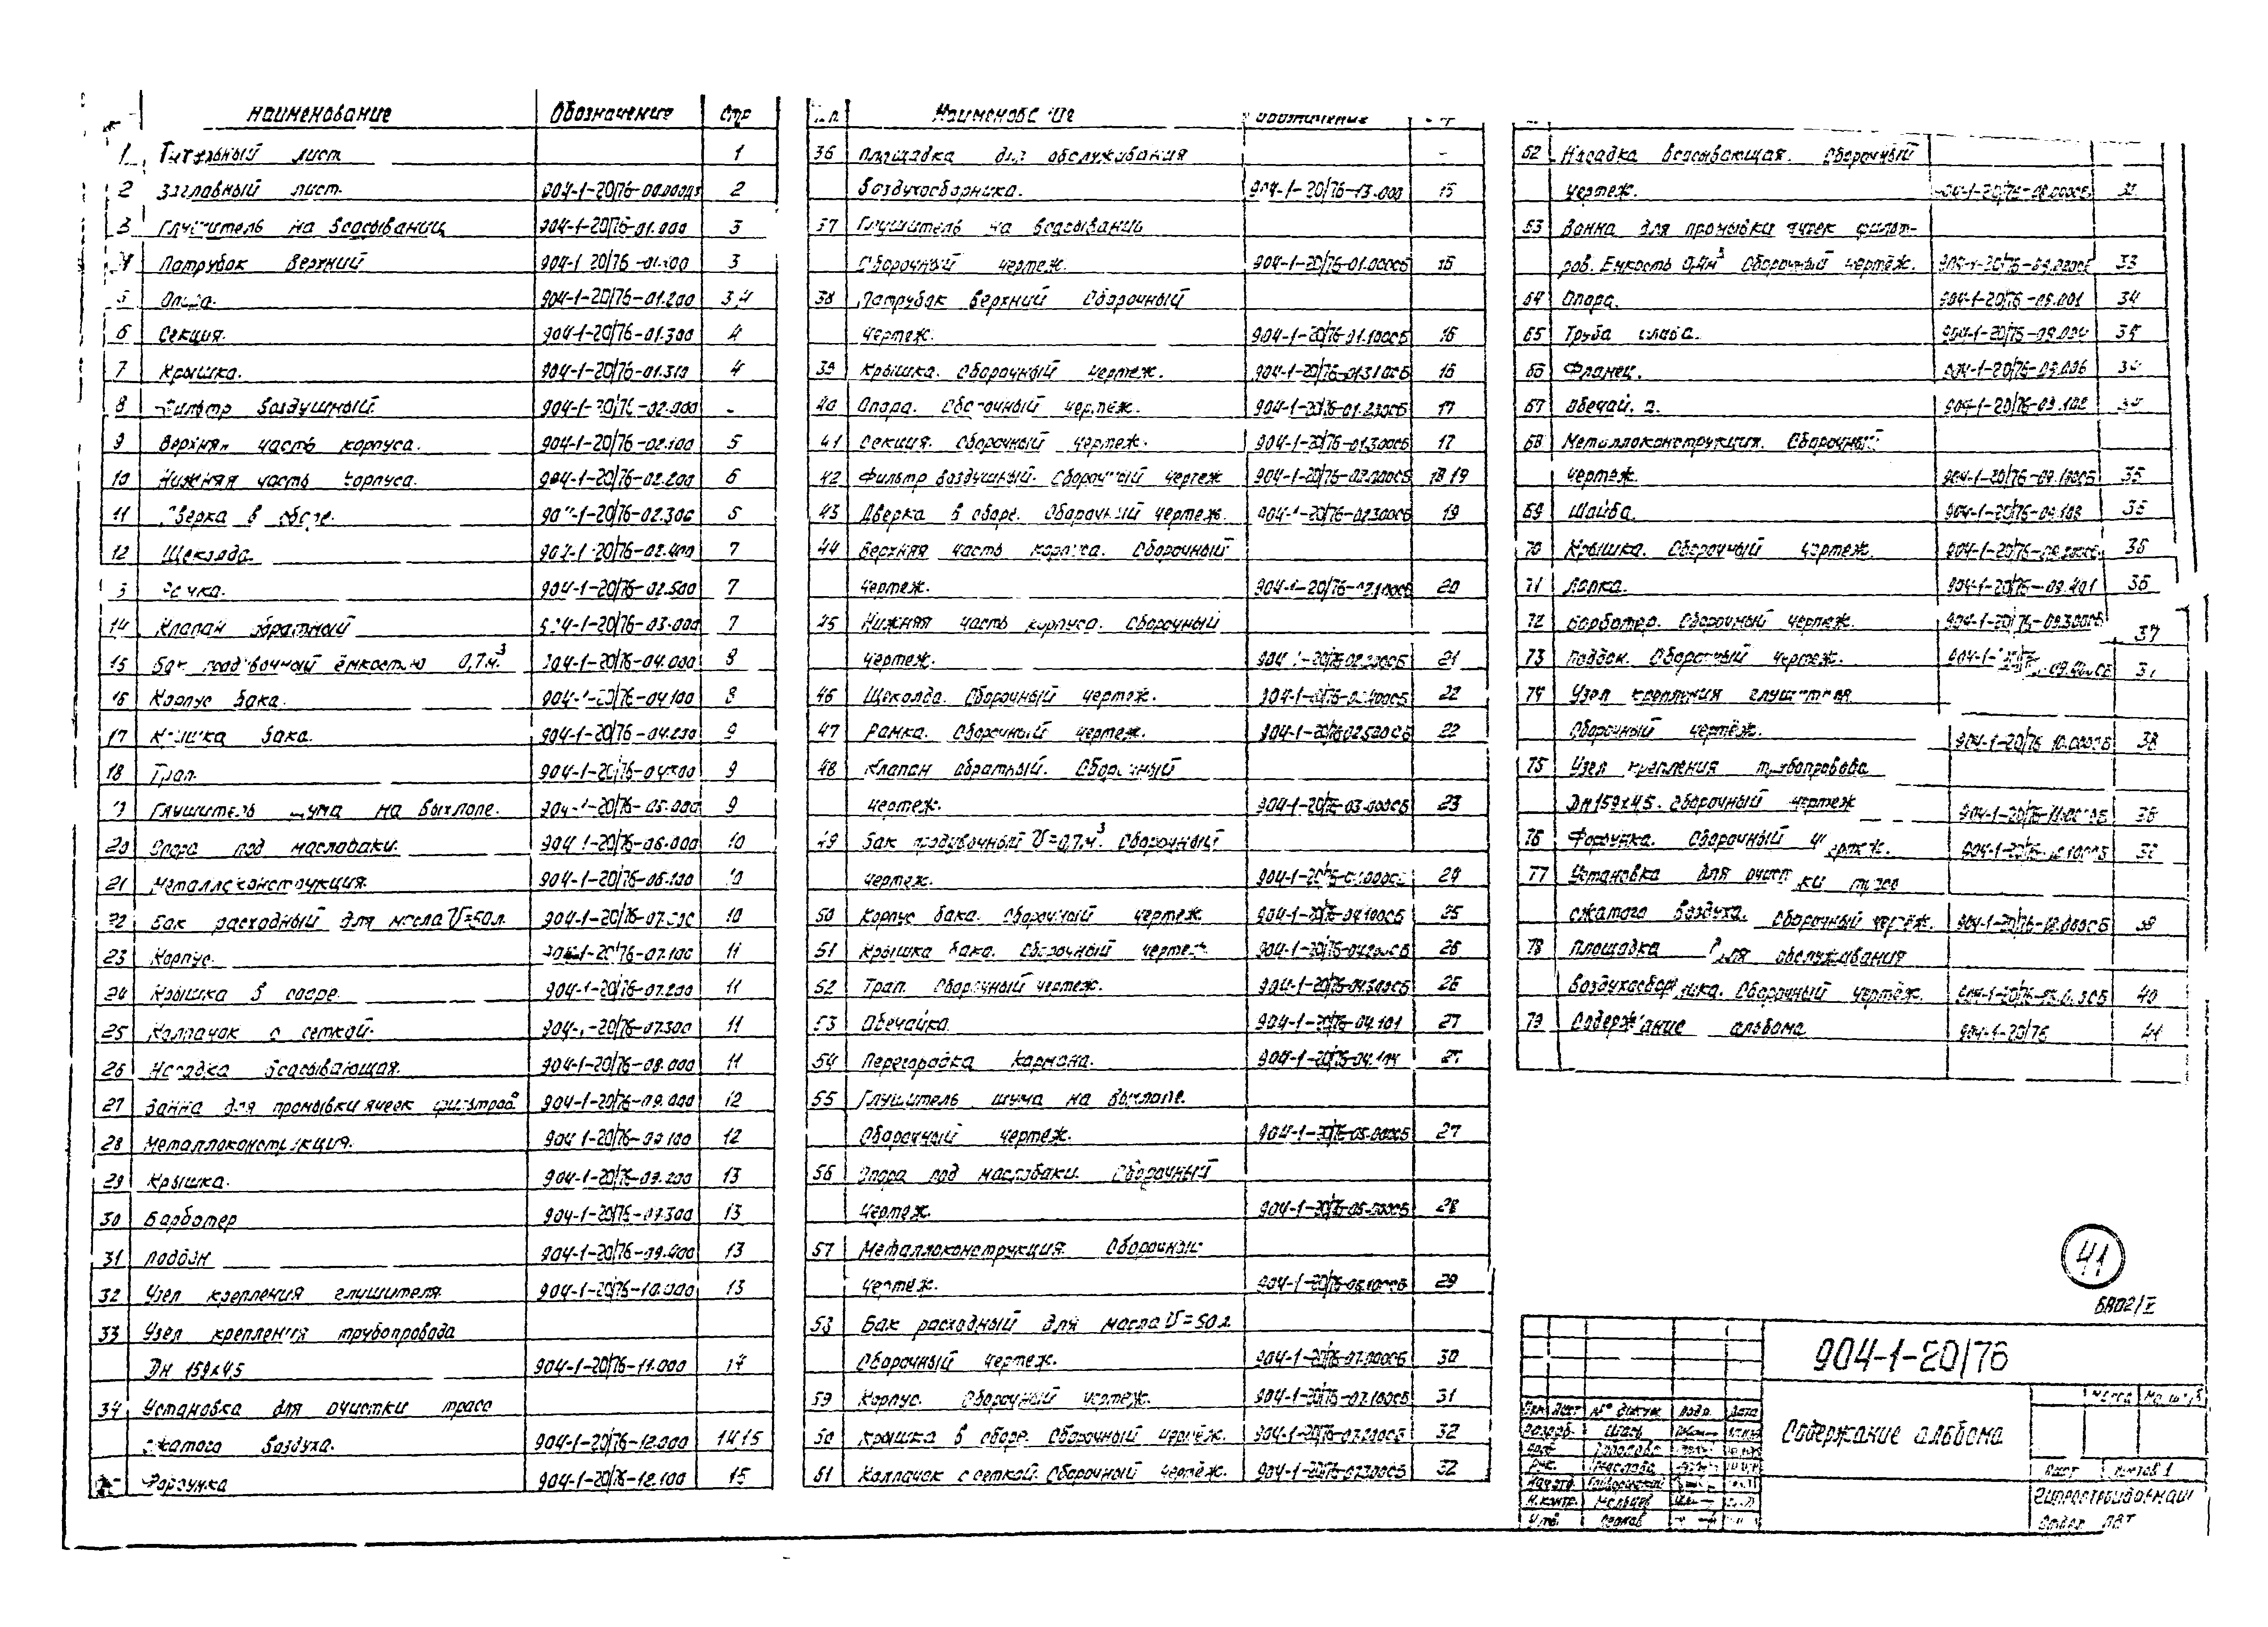 Наименование Обозначение Стр
1 Титульный лист 1
2 Заглавный лист. 904-1-20/76-00.000 2
3 Глушитель на всасывании 904-1-20/76-01.000 3
4 Патрубок верхний 904-1-20/76-01.100 3
5 Опора. 904-1-20/76-01.200 3,4
6 Секция. 904-1-20/76-01.300 4
7 Крышка. 904-1-20/76-01.310 4
8 Фильтр воздушный 904-1-20/76-02.000
9 Верхняя часть корпуса. 904-1-20/76-02.100 5
10 Нижняя часть корпуса. 904-1-20/76-02.200 6
11 Дверка в сборе. 904-1-20/76-02.300 6
12 Щеколда. 904-1-20/76-02.400 7
Рамка. 904-1-20/76-02.500 7
14 Клапан обратный 904-1-20/76-03.000 7
15 Бак продувочный ёмкостью 0,7м.³ 904-1-20/76-04.000 8
16 Корпус бака. 904-1-20/76-04.100 8
17 Крышка бака. 904-1-20/76-04.200 9
18 Трап. 904-1-20/76-04.300 9
19 Глушитель шума на выхлопе. 904-1-20/76-05.000 9
20 Опора под маслобаки. 904-1-20/76-06.000 10
21 Металлоконструкция. 904-1-20/76-06.100 10
22 Бак расходный для масла V=50л. 904-1-20/76-07.000 10
23 Корпус. 904-1-20/76-07.100 11
24 Крышка в сборе. 904-1-20/76-07.200 11
25 Колпачок с сеткой. 904-1-20/76-07.300 11
26 Насадка всасывающая. 904-1-20/76-08.000 11
27 Ванна для промывки ячеек фильтров 904-1-20/76-09.000 12
28 Металлоконструкция. 904-1-20/76-09.100 12
29 Крышка. 904-1-20/76-09.200 13
30 Барботер 904-1-20/76-09.300 13
31 Поддон 904-1-20/76-09.400 13
32 Узел крепления глушителя 904-1-20/76-10.000 13
33 Узел крепления трубопровода
Дн 159х4,5 904-1-20/76-11.000 14
34 Установка для очистки трасс
сжатого воздуха. 904-1-20/76-12.000 14,15
Форсунка 904-1-20/76-12.100 15
Наименование
36 Площадка для обслуживания
воздухосборника. 904-1-20/76-13.000 15
37 Глушитель на всасывании
Сборочный чертеж. 904-1-20/76-01.000СБ 16
38 Патрубок верхний Сборочный
чертеж. 904-1-20/76-01.100СБ 16
39 Крышка. Сборочный чертеж. 904-1-20/76-01.310СБ 16
40 Опора. Сборочный чертеж. 904-1-20/76-01.200СБ 17
41 Секция. Сборочный чертеж. 904-1-20/76-01.300СБ 17
42 Фильтр воздушный. Сборочный чертеж 904-1-20/76-02.000СБ 18,19
43 Дверка в сборе. Сборочный чертеж. 904-1-20/76-02.300СБ 19
44 Верхняя часть корпуса. Сборочный
чертеж. 904-1-20/76-02.100СБ 20
45 Нижняя часть корпуса. Сборочный
чертеж. 904-1-20/76-02.200СБ 21
46 Щеколда. Сборочный чертеж. 904-1-20/76-02.400СБ 22
47 Рамка. Сборочный чертеж. 904-1-20/76-02.500СБ 22
48 Клапан обратный. Сборочный
чертеж. 904-1-20/76-03.000СБ 23
49 Бак продувочный V=0,7м.³ Сборочный
чертеж. 904-1-20/76-04.000СБ 24
50 Корпус бака. Сборочный чертеж 904-1-20/76-04.100СБ 25
51 Крышка бака. Сборочный чертеж. 904-1-20/76-04.200СБ 26
52 Трап. Сборочный чертеж. 904-1-20/76-04.300СБ 26
53 Обечайка 904-1-20/76-04.101 27
54 Перегородка кармана. 904-1-20/76-04.104 27
55 Глушитель шума на выхлопе.
Сборочный чертеж. 904-1-20/76-05.000СБ 27
56 Опора под маслобаки. Сборочный
чертеж. 904-1-20/76-06.000СБ 28
57 Металлоконструкция Сборочный
чертеж. 904-1-20/76-06.100СБ 29
58 Бак расходный для масла V=50л
Сборочный чертеж. 904-1-20/76-07.000СБ 30
59 Корпус. Сборочный чертеж. 904-1-20/76-07.100СБ 31
60 Крышка в сборе. Сборочный чертёж. 904-1-20/76-07.200СБ 32
61 Колпачок с сеткой. Сборочный чертёж. 904-1-20/76-07.300СБ 32
62 Насадка всасывающая. Сборочный
чертеж. 904-1-20/76-08.000СБ
63 Ванна для промывки ячеек фильт-
ров. Емкость 0,4м³ Сборочный чертёж. 904-1-20/76-09.000СБ 33
64 Опора. 904-1-20/76-09.001 34
65 Труба слива. 904-1-20/76-09.004 34
66 Фланец. 904-1-20/76-09.006 34
67 Обечайка. 904-1-20/76-09.102 34
68 Металлоконструкция. Сборочный
чертеж 904-1-20/76-09.100СБ 35
69 Шайба. 904-1-20/76-09.108 35
70 Крышка. Сборочный чертеж. 904-1-20/76-09.200СБ 36
71 Лапка. 904-1-20/76-09.401 36
72 Барботер. Сборочный чертеж. 904-1-20/76-09.300СБ 37
73 Поддон. Сборочный чертеж. 904-1-20/76-09.400СБ 37
74 Узел крепления глушителя
Сборочный чертёж. 904-1-20/76-10.000СБ 38
75 Узел крепления трубопровода
Дн159х4,5. Сборочный чертеж 904-1-20/76-11.000СБ 38
76 Форсунка. Сборочный чертеж. 904-1-20/76-12.100СБ 38
77 Установка для очистки трасс
сжатого воздуха. Сборочный чертёж. 904-1-20/76-12.000СБ 39
78 Площадка для обслуживания
воздухосборника. Сборочный чертёж. 904-1-20/76-13.000СБ 40
79 Содержание альбома 904-1-20/76 41
41
904-1-20/76
Содержание альбома
Масса Масштаб
Изм Лист № докум. Подп. Дата
Разраб.
Рук. Маслова
Нач.отд.
Н.контр. Мельцев
Утв.
Лист Листов 1
Гипростройдормаш